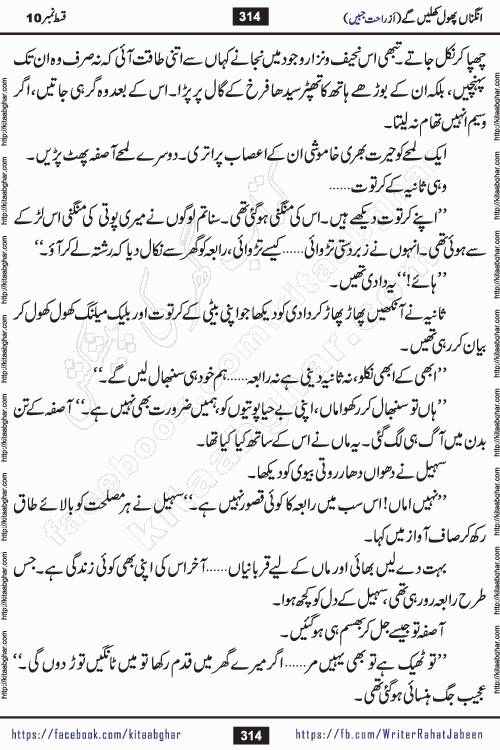 انگناں پھول کھلیں گے (از راحت جبیں)
314
قسط نمبر 10
چھپا کر نکل جاتے۔ تبھی اس نحیف و نزار وجود میں نجانے کہاں سے اتنی طاقت آئی کہ نہ صرف وہ ان تک
پہنچیں، بلکہ ان کے بوڑھے ہاتھ کا تھپڑ سیدھا فرخ کے گال پر پڑا۔ اس کے بعد وہ گر ہی جاتیں، اگر
وسیم انہیں تھام نہ لیتا۔
ایک لمحے کو حیرت بھری خاموشی ان کے اعصاب پر اتری۔ دوسرے لمحے آصفہ پھٹ پڑیں۔
وہی ثانیہ کے کرتوت......
’’اپنے کرتوت دیکھے ہیں۔ اس کی منگنی ہوگئی تھی۔ سنا تم لوگوں نے میری پوتی کی منگنی اس لڑکے
سے ہوئی تھی۔ انہوں نے زبردستی تڑوائی...... کیسے تڑوائی، رابعہ کو گھر سے نکال دیا کہ رشتہ لے کر آؤ۔‘‘
’’ہائے!‘‘ یہ دادی تھیں۔
ثانیہ نے آنکھیں پھاڑ پھاڑ کر دادی کو دیکھا جو اپنی بیٹی کے کرتوت اور بلیک میلنگ کھول کھول کر
بیان کر رہی تھیں۔
’’ابھی کے ابھی نکلو، نہ ثانیہ دینی ہے نہ رابعہ...... ہم خود ہی سنبھال لیں گے۔‘‘
’’ہاں تو سنبھال کر رکھو اماں، اپنی بے حیا پوتیوں کو، ہمیں ضرورت بھی نہیں ہے۔‘‘ آصفہ کے تن
بدن میں آگ ہی لگ گئی۔ یہ ماں نے اس کے ساتھ کیا کیا تھا۔
سہیل نے دھواں دھار روتی بیوی کو دیکھا۔
’’نہیں اماں! اس سب میں رابعہ کا کوئی قصور نہیں ہے۔‘‘ سہیل نے ہر مصلحت کو بالائے طاق
رکھ کر صاف آواز میں کہا۔
بہت دے لیں بھائی اور ماں کے لیے قربانیاں...... آخر اس کی اپنی بھی کوئی زندگی ہے۔ جس
طرح رابعہ رو رہی تھی، سہیل کے دل کو کچھ ہوا۔
آصفہ تو جیسے جل کر بھسم ہی ہوگئیں۔
’’تو ٹھیک ہے تو بھی یہیں مر...... اگر میرے گھر میں قدم رکھا تو میں ٹانگیں توڑ دوں گی۔‘‘
عجیب جگ ہنسائی ہوگئی تھی۔
https://facebook.com/kitaabghar
314
https://fb.com/WriterRahatJabeen
http://kitaabghar.com
کتاب گھر کی پیشکش
kitaabghar.com
facebook.com/kitaabghar